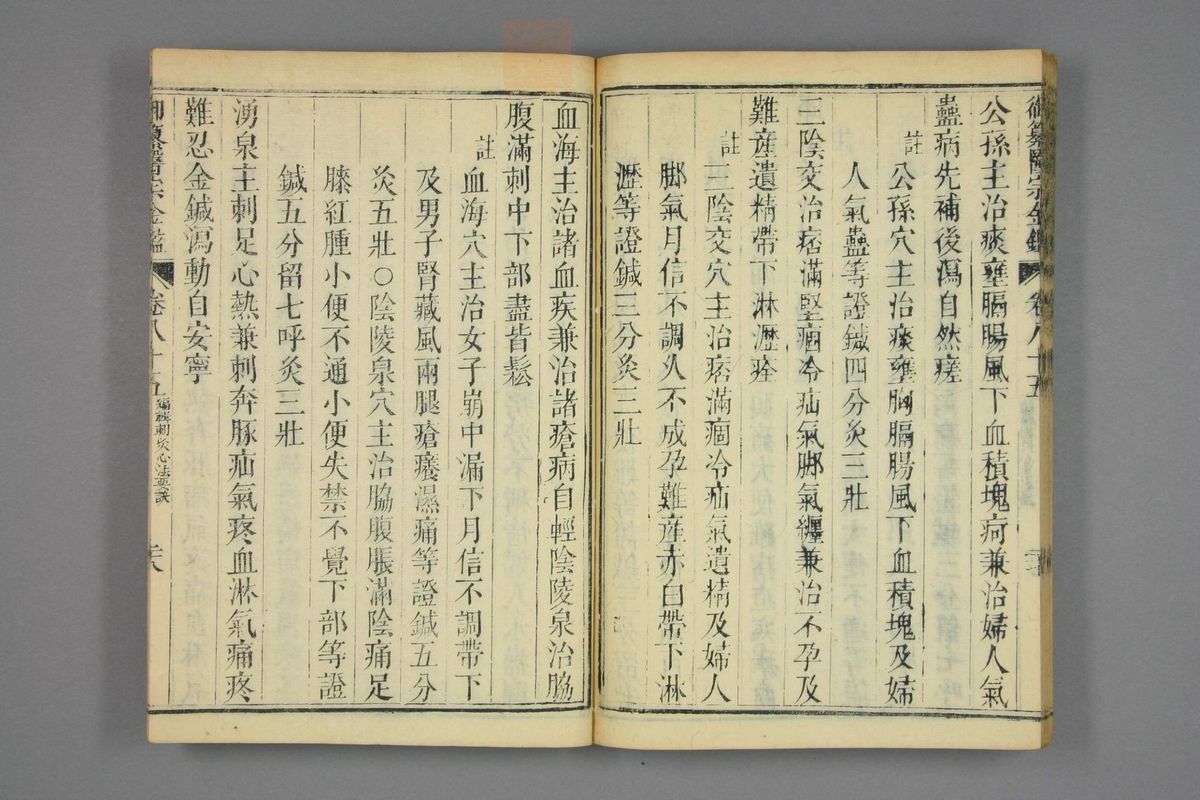 御纂醫宗金鑑 卷八十五
公孫主治痰壅膈腸風下血積塊疴兼治婦人氣
蠱病先補後瀉自然瘥
註 公孫穴主治痰壅胸膈腸風下血積塊及婦
人氣蠱等證鍼四分灸三壯
三陰交治痞滿堅痼冷疝氣脚氣纏兼治不孕及
難產遺精帶下淋瀝痊
註 三陰交穴主治痞滿痼冷疝氣遺精及婦人
脚氣月信不調久不成孕難產赤白帶下淋
瀝等證鍼三分灸三壯
血海主治諸血疾兼治諸瘡病自輕陰陵泉治脇
腹滿刺中下部盡皆鬆
註 血海穴主治女子崩中漏下月信不調帶下
及男子腎藏風兩腿瘡癢濕痛等證鍼五分
灸五壯○陰陵泉穴主治脇腹脹滿陰痛足
膝紅腫小便不通小便失禁不覺下部等證
鍼五分留七呼灸三壯
湧泉主刺足心熱兼刺奔豚疝氣疼血淋氣痛疼
難忍金鍼瀉動自安寧
御纂醫宗金鑑 卷八十五 編輯刺灸心法要訣 二八